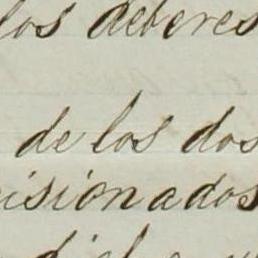 los deberes
de los dos
isionados